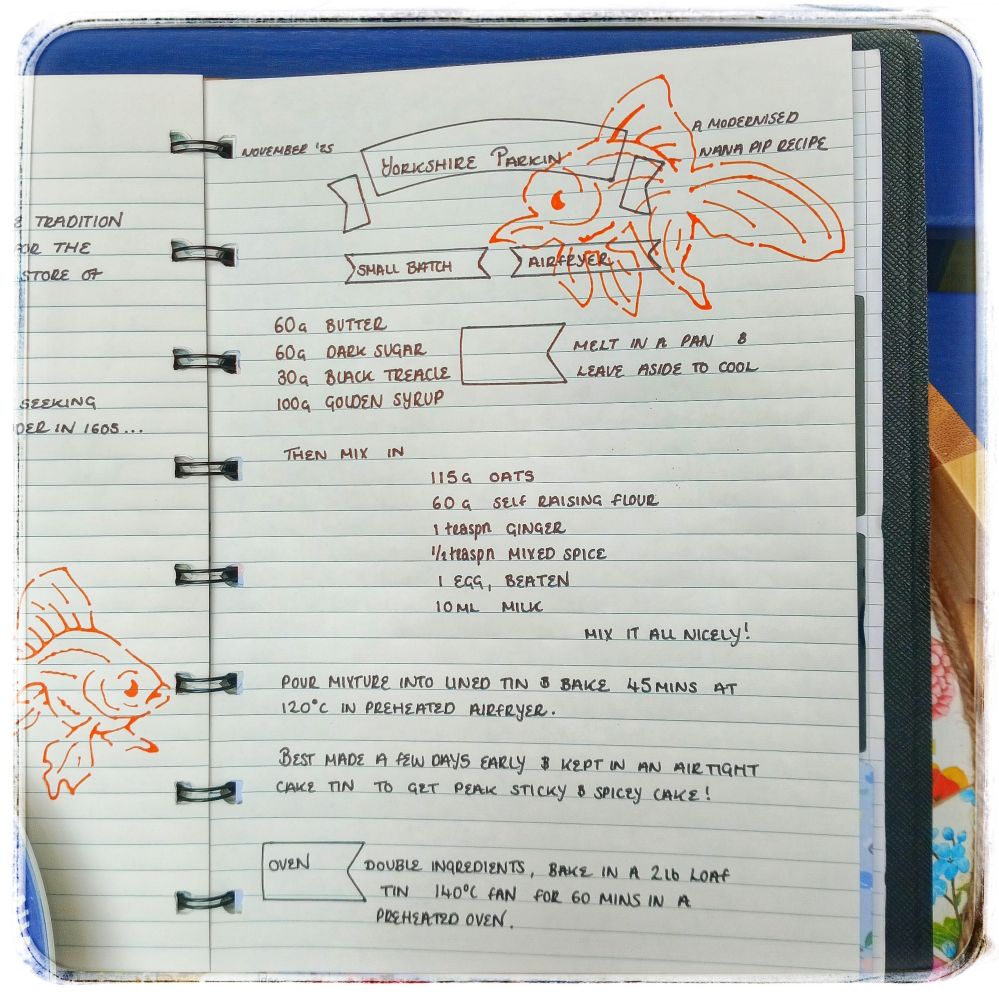 E TRADITION
OR THE
STORE OF
SEEKING
DER IN 1605...
NOVEMBER '25
YORKSHIRE PARKIN
A MODERNISED
NANA PIP RECIPE
SMALL BATCH
AIRFRYER
60g BUTTER
60g DARK SUGAR
30g BLACK TREACLE
100g GOLDEN SYRUP
MELT IN A PAN &
LEAVE ASIDE TO COOL
THEN MIX IN
115g OATS
60g SELF RAISING FLOUR
1 teaspn GINGER
1/2 teaspn MIXED SPICE
1 EGG, BEATEN
10ML MILK
MIX IT ALL NICELY!
POUR MIXTURE INTO LINED TIN & BAKE 45MINS AT
120°C IN PREHEATED AIRFRYER.
BEST MADE A FEW DAYS EARLY & KEPT IN AN AIRTIGHT
CAKE TIN TO GET PEAK STICKY & SPICEY CAKE!
OVEN
DOUBLE INGREDIENTS, BAKE IN A 2lb LOAF
TIN 140°C FAN FOR 60 MINS IN A
PREHEATED OVEN.